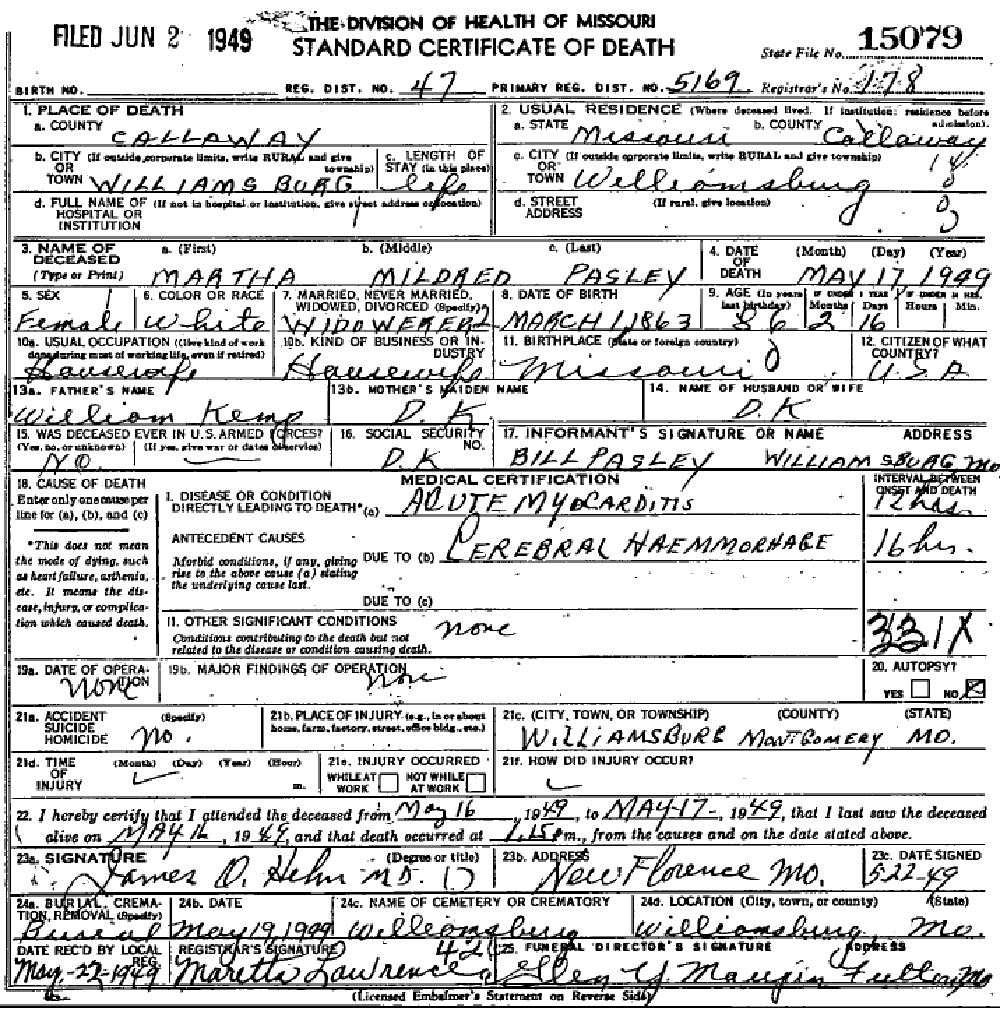 FILED JUN 2 1949
THE DIVISION OF HEALTH OF MISSOURI
STANDARD CERTIFICATE OF DEATH
State File No. 15079
BIRTH NO. REG. DIST. NO. 47 PRIMARY REG. DIST. NO. 5169 Registrar's No. 178
1. PLACE OF DEATH
a. COUNTY CALLAWAY
b. CITY (If outside corporate limits, write RURAL and give township) OR TOWN WILLIAMSBURG
c. LENGTH OF STAY (in this place) life
d. FULL NAME OF HOSPITAL OR INSTITUTION (If not in hospital or institution, give street address or location)
2. USUAL RESIDENCE (Where deceased lived. If institution: residence before admission).
a. STATE Missouri b. COUNTY Callaway
c. CITY (If outside corporate limits, write RURAL and give township) OR TOWN Williamsburg
d. STREET ADDRESS (If rural, give location)
3. NAME OF DECEASED (Type or Print) a. (First) MARTHA b. (Middle) MILDRED c. (Last) PASLEY
4. DATE OF DEATH (Month) (Day) (Year) MAY 17, 1949
5. SEX Female
6. COLOR OR RACE White
7. MARRIED, NEVER MARRIED, WIDOWED, DIVORCED (Specify) WIDOWERED 2
8. DATE OF BIRTH MARCH 1, 1863
9. AGE (In years last birthday) 86 IF UNDER 1 YEAR Months 2 Days 16 IF UNDER 24 HRS. Hours Min.
10a. USUAL OCCUPATION (Give kind of work done during most of working life, even if retired) Housewife
10b. KIND OF BUSINESS OR INDUSTRY Housewife
11. BIRTHPLACE (State or foreign country) Missouri
12. CITIZEN OF WHAT COUNTRY? U.S.A
13a. FATHER'S NAME William Kemp
13b. MOTHER'S MAIDEN NAME D.K.
14. NAME OF HUSBAND OR WIFE D.K
15. WAS DECEASED EVER IN U.S. ARMED FORCES? (Yes, no, or unknown) (If yes, give war or dates of service) NO.
16. SOCIAL SECURITY NO. D.K
17. INFORMANT'S SIGNATURE OR NAME ADDRESS
BILL PASLEY WILLIAMSBURG MO
18. CAUSE OF DEATH
Enter only one cause per line for (a), (b), and (c)
*This does not mean the mode of dying, such as heart failure, asthenia, etc. It means the disease, injury, or complication which caused death.
MEDICAL CERTIFICATION
INTERVAL BETWEEN ONSET AND DEATH
I. DISEASE OR CONDITION DIRECTLY LEADING TO DEATH* (a) ACUTE MYOCARDITIS 12 hrs.
ANTECEDENT CAUSES
Morbid conditions, if any, giving rise to the above cause (a) stating the underlying cause last.
DUE TO (b) CEREBRAL HAEMMORHAGE 16 hrs.
DUE TO (c)
II. OTHER SIGNIFICANT CONDITIONS none
Conditions contributing to the death but not related to the disease or condition causing death.
331X
19a. DATE OF OPERATION None
19b. MAJOR FINDINGS OF OPERATION None
20. AUTOPSY? YES NO
21a. ACCIDENT SUICIDE HOMICIDE (Specify) No.
21b. PLACE OF INJURY (e.g., in or about home, farm, factory, street, office bldg., etc.)
21c. (CITY, TOWN, OR TOWNSHIP) (COUNTY) (STATE)
WILLIAMSBURG MONTGOMERY MO.
21d. TIME OF INJURY (Month) (Day) (Year) (Hour) m.
21e. INJURY OCCURRED WHILE AT WORK NOT WHILE AT WORK
21f. HOW DID INJURY OCCUR?
22. I hereby certify that I attended the deceased from May 16, 1949, to MAY-17-, 1949, that I last saw the deceased
alive on MAY 16, 1949, and that death occurred at 1:15 pm., from the causes and on the date stated above.
23a. SIGNATURE (Degree or title) James O. Helm MD.
23b. ADDRESS New Florence Mo.
23c. DATE SIGNED 5-22-49
24a. BURIAL, CREMATION, REMOVAL (Specify) Burial
24b. DATE May 19, 1949
24c. NAME OF CEMETERY OR CREMATORY Williamsburg
24d. LOCATION (City, town, or county) (State) Williamsburg, Mo.
DATE REC'D BY LOCAL REG. May-22-1949
REGISTRAR'S SIGNATURE Maretta Lawrence
25. FUNERAL DIRECTOR'S SIGNATURE ADDRESS
Glen Y Maupin Fulton Mo
(Licensed Embalmer's Statement on Reverse Side)